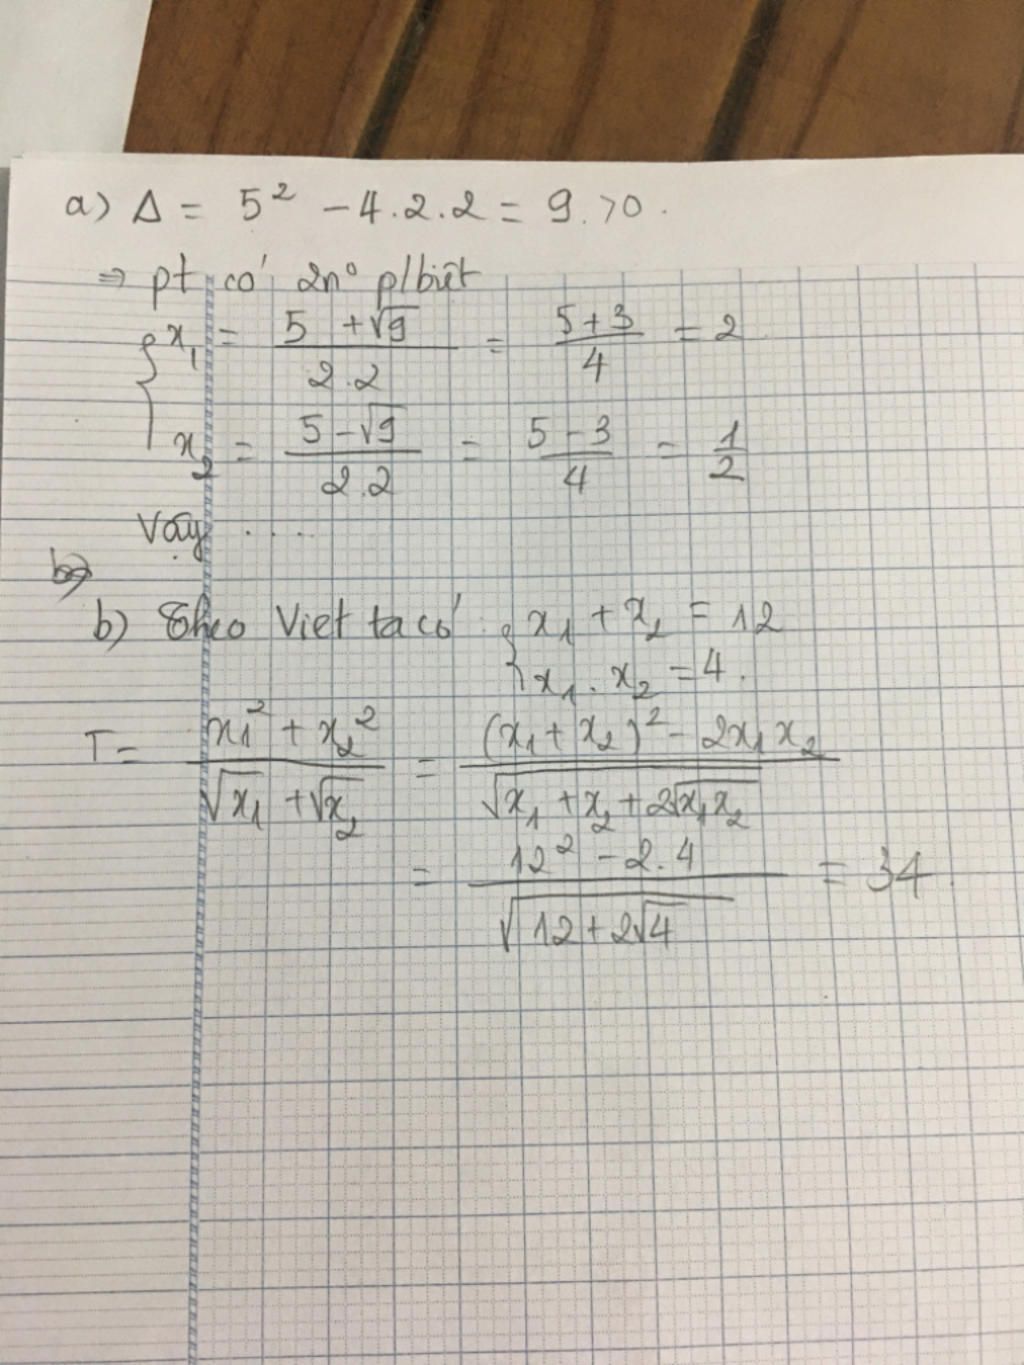 a) Δ = 5² - 4.2.2 = 9 > 0.
⇒ pt có 2n° p/biệt
{ x₁ = (5 + √9)/(2.2) = (5+3)/4 = 2
x₂ = (5 - √9)/(2.2) = (5 - 3)/4 = 1/2
Vậy ....
b) Theo Viet ta có { x₁ + x₂ = 12
x₁ . x₂ = 4.
T = (x₁² + x₂²)/(√x₁ + √x₂) = ((x₁ + x₂)² - 2x₁x₂)/√(x₁ + x₂ + 2√(x₁x₂))
= (12² - 2.4)/√(12 + 2√4) = 34.